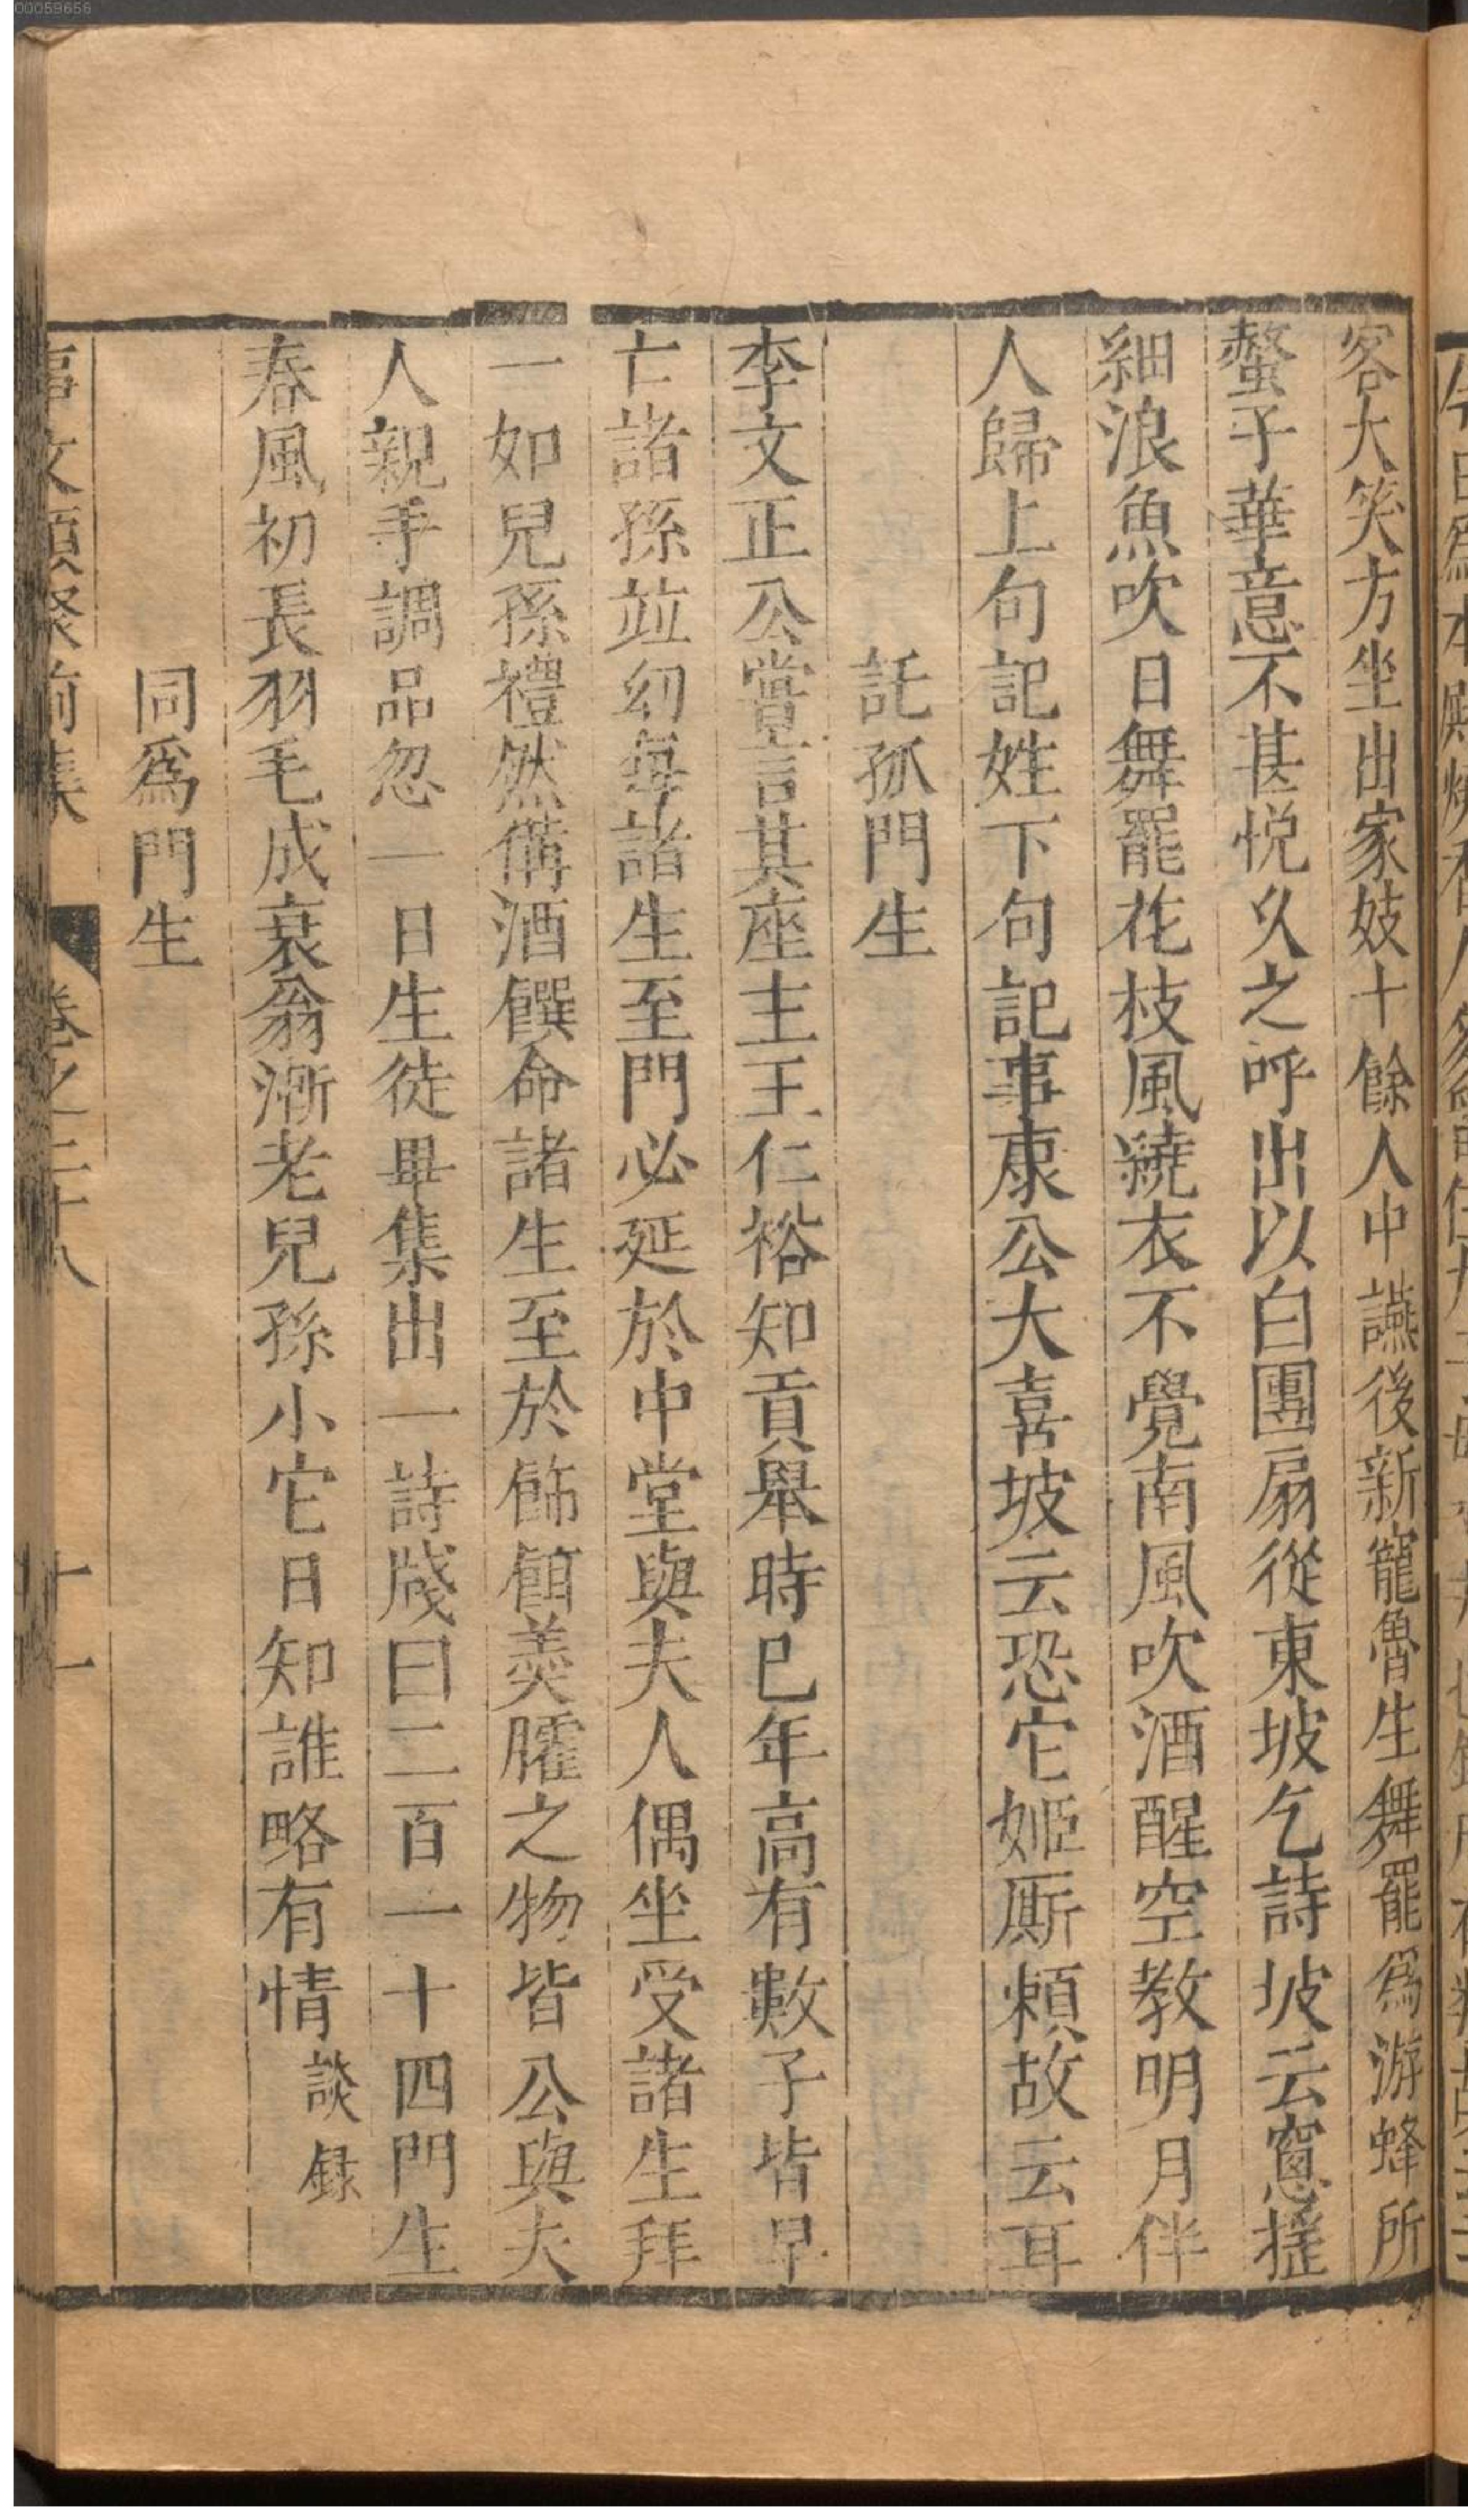 00059656
客大笑方坐出家妓十餘人中讌後新寵魯生舞罷爲游蜂所
螫子華意不甚悅久之呼出以白團扇從東坡乞詩坡云窻揺
細浪魚吹日舞罷花枝風繞衣不覺南風吹酒醒空教明月伴
人歸上句記姓下句記事康公大喜坡云恐它姬厮頼故云耳
託孤門生
李文正公嘗言其座主王仁裕知貢舉時巳年高有數子皆早
亡諸孫竝幻每諸生至門必延於中堂與夫人偶坐受諸生拜
一如兒孫禮然備酒饌命諸生至於飾餖羮臛之物皆公與夫
人親手調品忽一日生徒畢集出一詩牋曰二百一十四門生
春風初長羽毛成衰翁漸老兒孫小它日知誰略有情談録
同爲門生
事文類聚前集 卷之二十八 十一